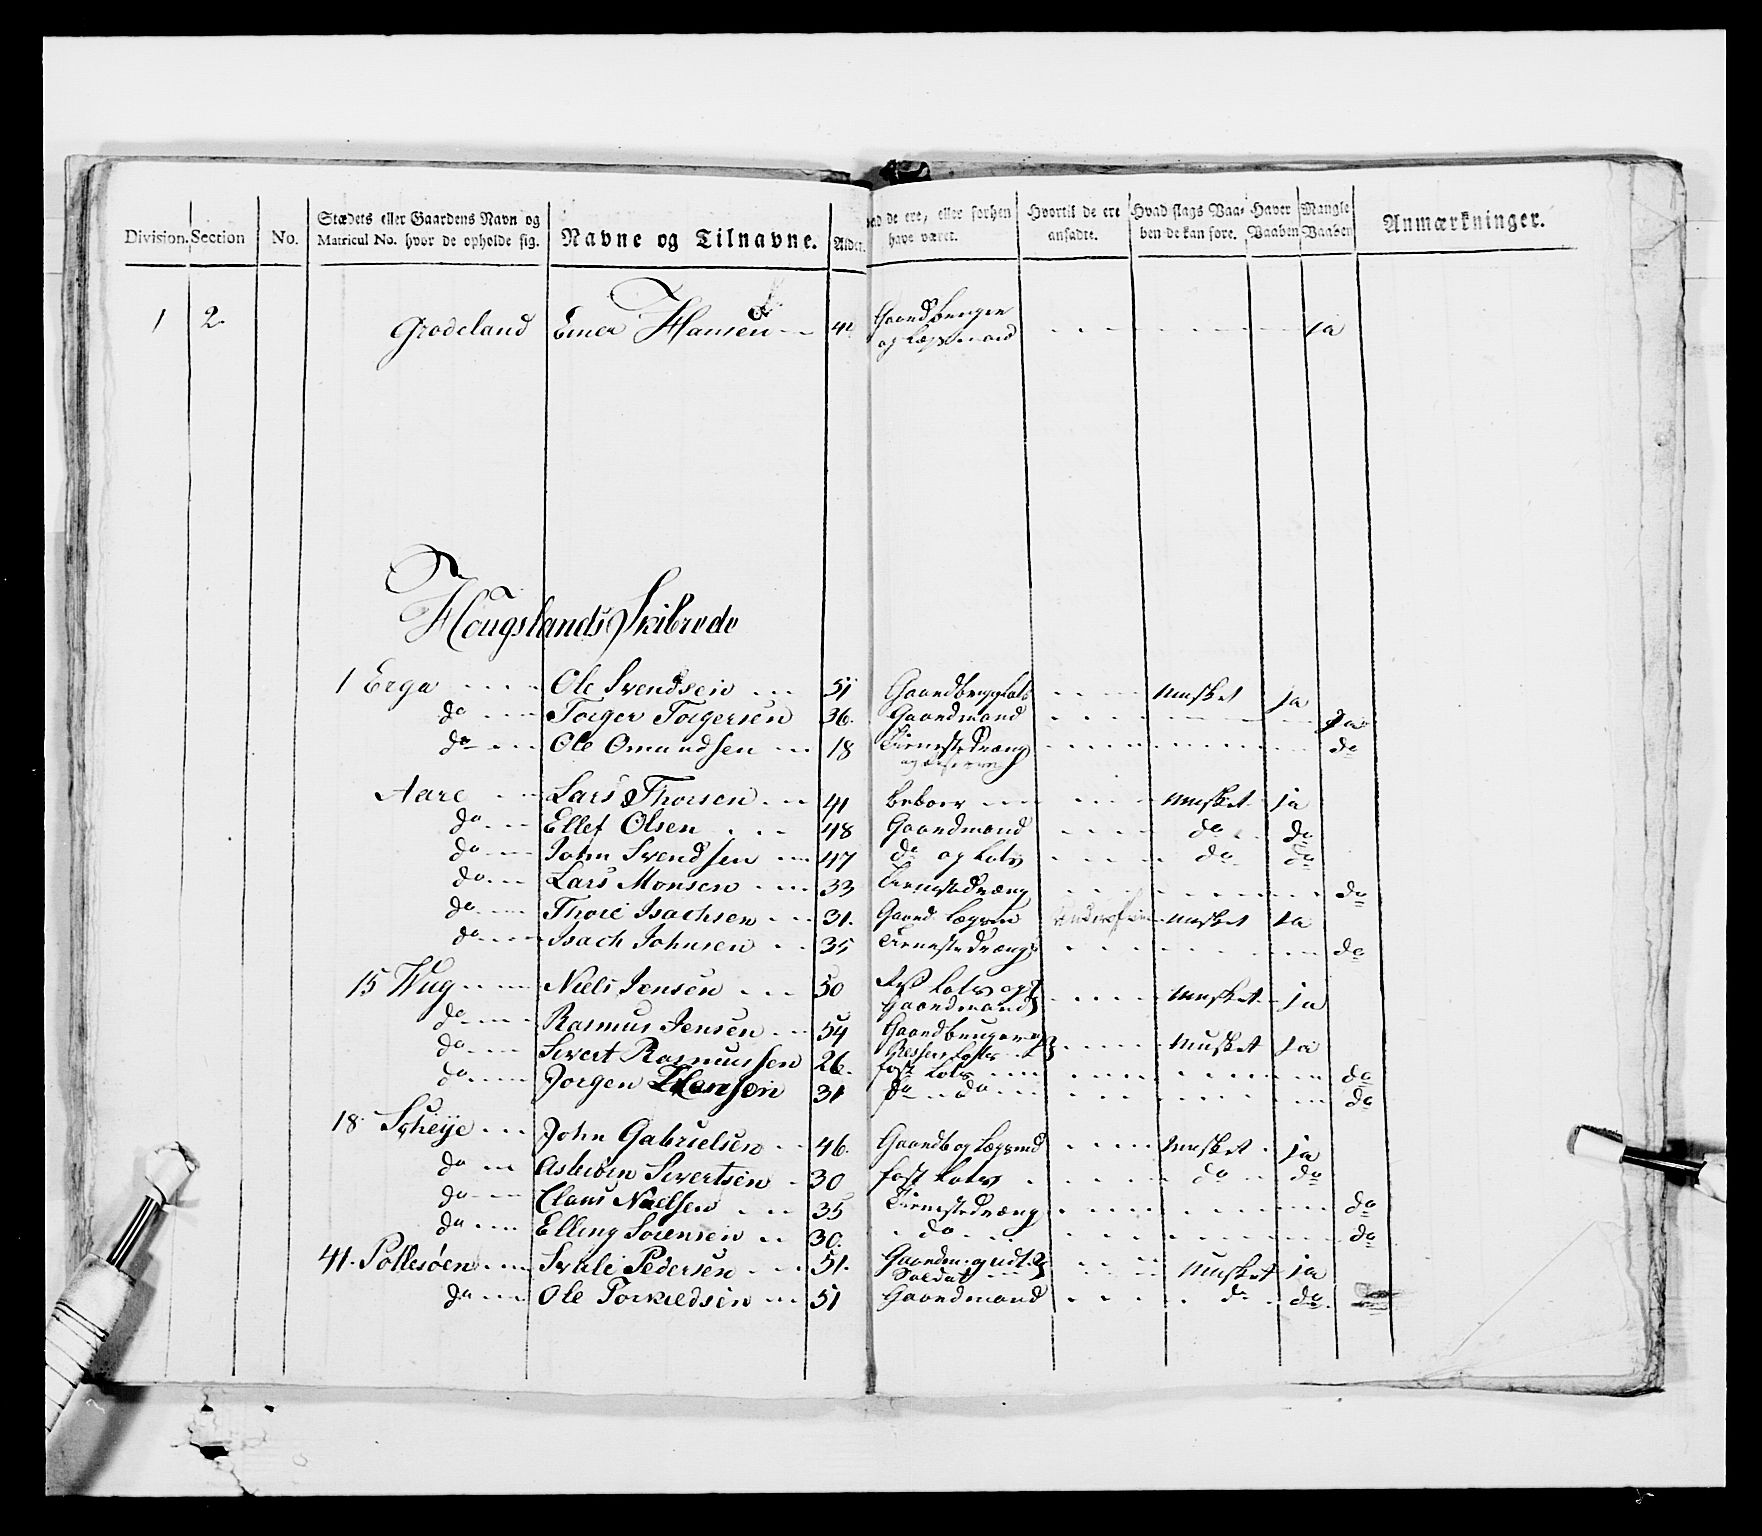 Division. Section No. Stædets eller Gaardens Navn og Matricul No. hvor de opholde sig. Navne og Tilnavne. Alder. Hvad de ere, eller forhen have været. Hvortil de ere ansadte. Hvad slags Vaaben de kan føre. Haver Vaaben Mangle Vaaben Anmærkninger.
1 2. Grodeland Einer Hansen 42 Gaardbruger og Lægsmand ja
Hougslands Skibrede
1 Erga Ole Svendsen 51 Gaardbrug Lods Musket ja
do Torger Torgersen 36. Gaardmand ja
do Ole Omundsen 18 Tienestedræng do
Aare Lars Thorsen 41 beboer Musket ja
do Ellef Olsen 48 Gaardmand do do
do John Svendsen 47 do og Lods do do
do Lars Monsen 33 Tienestedræng do
do Thore Isachsen 31. Gaard Musket ja
do Isach Johnsen 35 Tienestedræng do
15 Wug Niels Jensen 50 Lods og Gaardmand Musket ja
do Rasmus Jensen 54 Gaardbruger Musket ja
do Sivert Rasmussen 26. fast Lods do
do Jorgen Hansen 31 do do do
18. Scheije John Gabrielsen 46. Gaardb og Lægsmd Musket ja
do Asbiørn Sivertsen 30 fast Lods do do
do Claus Nielsen 35 Tienestedræng do
do Elling Sørensen 30. do do
41. Pollesøen Svale Pedersen 51. Gaardm. og udt. Soldat Musket ja
do Ole Torkildsen 51 Gaardmand do do